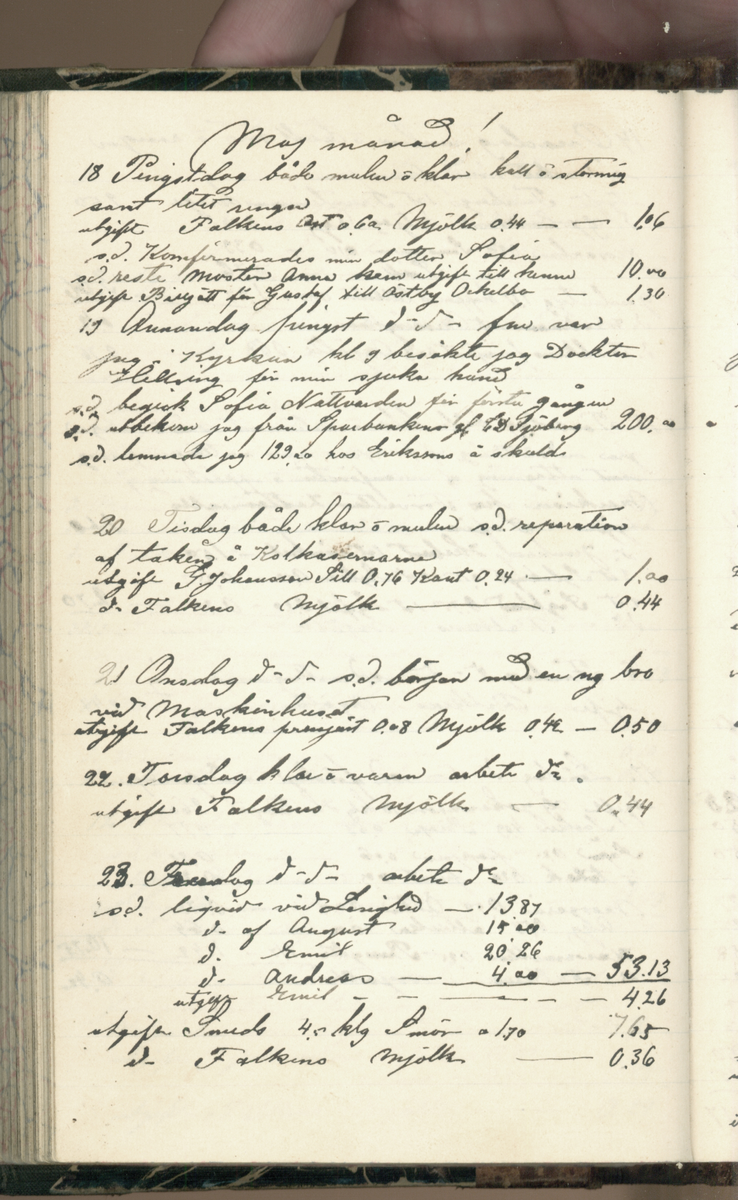 Maj månad!
18 Pingstdag både mulen ö klar kall ö stormig
samt litet ringa
utgift Falkens Ost 0.62 Mjölk 0.44 — — 1.06
s.d. Konfirmerades min dotter Sofia
s.d. reste Moster Anna hem utgift till henne 10.00
utgift Billjätt för Gustaf till Östby Ockelbo — 1.30
19 Annandag Pingst d-d- fm var
jag i Kyrkan kl 9 besökte jag Docktor
Hellsing för min sjuka hand
s.d. begick Sofia Nattvarden för första gången
s.d. utbekom jag från Sparbanken gf C D Sjöberg 200.00
s.d. lemnade jag 129.00 hos Erikssons å skuld
20 Tisdag både klar ö mulen s.d. reparation
af taken å Kolkasernarne
utgift P. Johansson Sill 0.76 Kornt 0.24 — 1.00
d- Falkens Mjölk — 0.44
21 Onsdag d-d- s.d. början med en ny bro
vid Maskinhuset
utgift Falkens 0.08 Mjölk 0.42 — 0.50
22. Torsdag klar ö varm arbete do.
utgift Falkens Mjölk — 0.44
23. Fredag d-d- arbete do
s.d. liqvid vid — 13.87
d- af August 15.00
d. Emil 20.26
d- Andreas — 4.00 — 53.13
utgift Emil — — — — 4.26
utgift Smeds 4.5 klg Smör a 1.70 7.65
d- Falkens Mjölk — 0.36